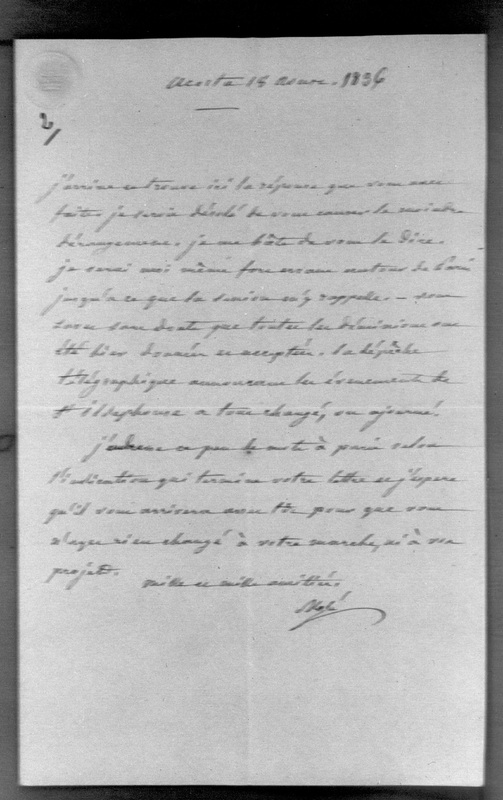 acosta 18 aoust. 1836
2/
j'arrive et trouve ici la réponse que vous avez
faite. je serais désolé de vous causer le moindre
dérangement. je me hâte de vous le dire.
je serai moi même fort errant autour de Paris
jusqu'a ce que la saison m'y rappelle. — vous
savez sans doute que toutes les démissions ont
été hier données et acceptées. la dépêche
télégraphique annonçant les évenements de
St ildephonse a tout changé, ou ajourné.
j'adresse ce peu de mots à paris selon
l'indication qui termine votre lettre et j'espere
qu'il vous arrivera assez tôt pour que vous
n'ayez rien changé à votre marche, ni à vos
projets.
mille et mille amitiés.
Molé